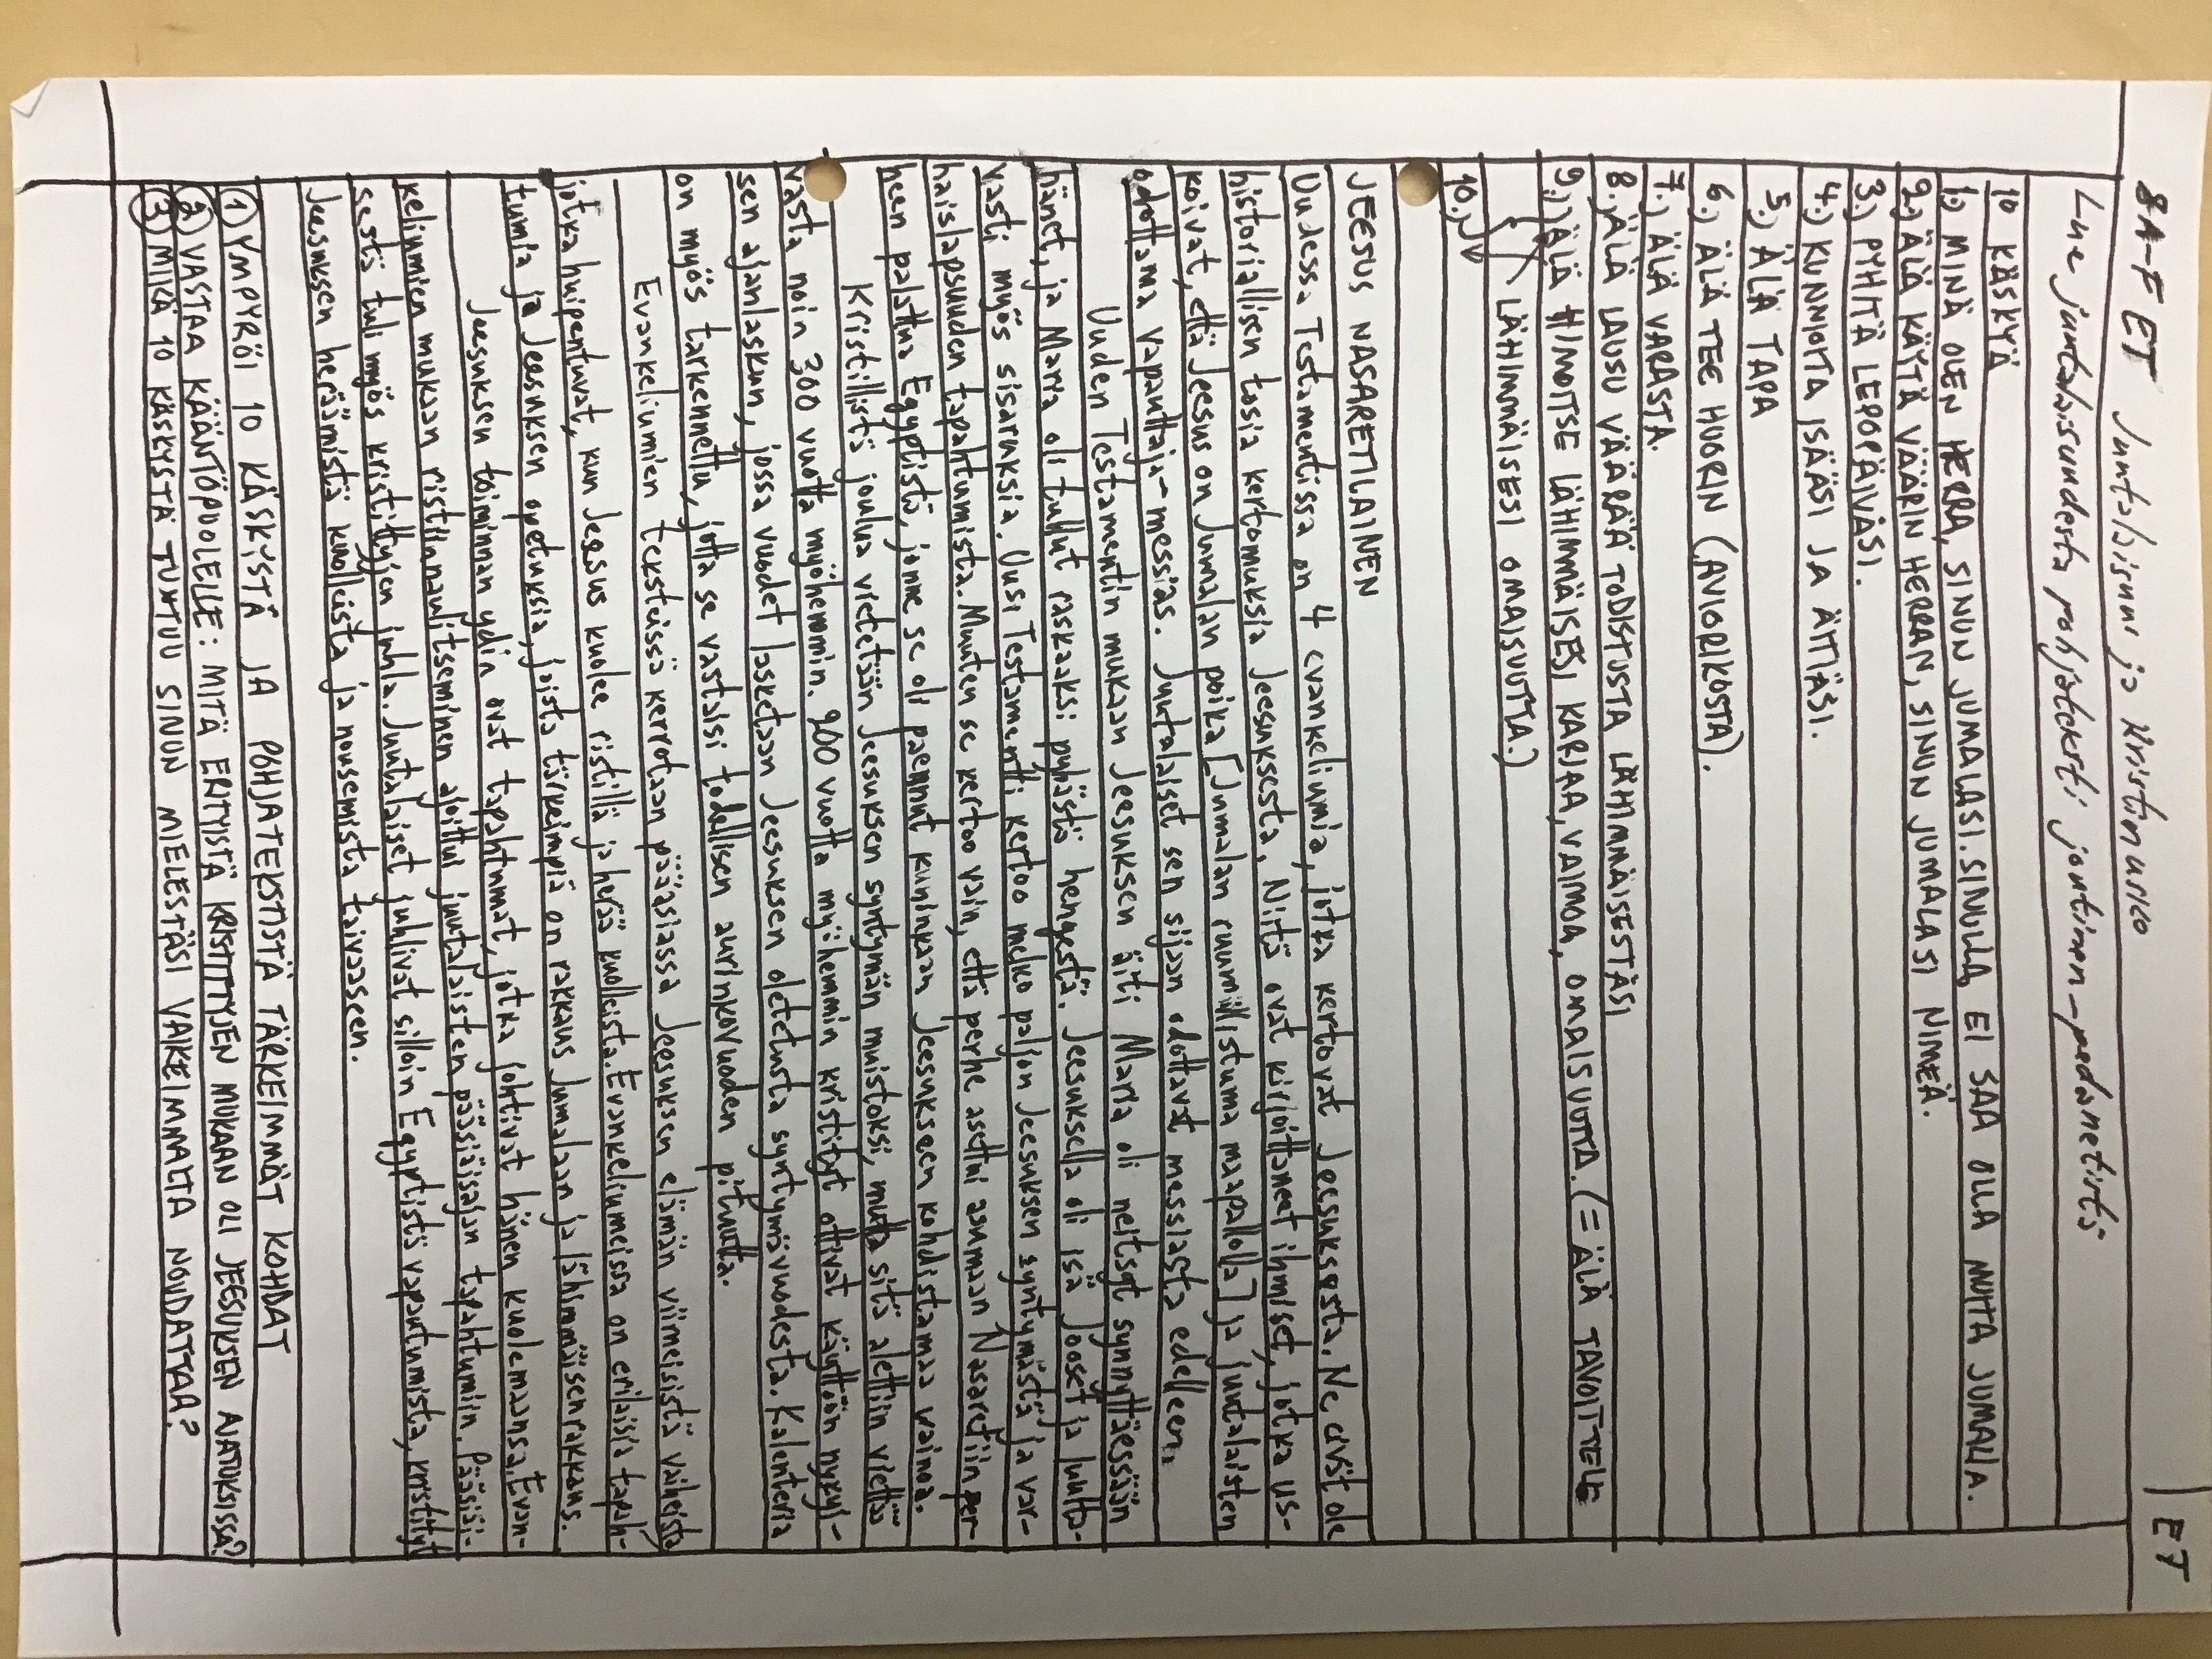 8A-F ET Juutalaisuus ja kristinusko
ET
Lue juutalaisuudesta pohjateksti jontinen-pedanetistä
10 KÄSKYÄ
1.) MINÄ OLEN HERRA, SINUN JUMALASI. SINULLA EI SAA OLLA MUITA JUMALIA.
2.) ÄLÄ KÄYTÄ VÄÄRIN HERRAN, SINUN JUMALASI NIMEÄ.
3.) PYHITÄ LEPOPÄIVÄSI.
4.) KUNNIOITA ISÄÄSI JA ÄITIÄSI.
5.) ÄLÄ TAPA
6.) ÄLÄ TEE HUORIN (AVIORIKOSTA).
7.) ÄLÄ VARASTA.
8.) ÄLÄ LAUSU VÄÄRÄÄ TODISTUSTA LÄHIMMÄISESTÄSI
9.) ÄLÄ HIMOITSE LÄHIMMÄISESI KARJAA, VAIMOA, OMAISUUTTA. (= ÄLÄ TAVOITTELE
LÄHIMMÄISESI OMAISUUTTA.)
10.)
JEESUS NASARETILAINEN
Uudessa Testamentissa on 4 evankeliumia, jotka kertovat Jeesuksesta. Ne eivät ole
historiallisen tosia kertomuksia Jeesuksesta. Niitä ovat kirjoittaneet ihmiset, jotka us-
koivat, että Jeesus on Jumalan poika [Jumalan ruumiillistuma maapallolla] ja juutalaisten
odottama vapauttaja-messias. Juutalaiset sen sijaan odottavat messiasta edelleen.
Uuden Testamentin mukaan Jeesuksen äiti Maria oli neitsyt synnyttäessään
hänet, ja Maria oli tullut raskaaksi pyhästä hengestä. Jeesuksella oli isä Joosef ja luulta-
vasti myös sisaruksia. Uusi Testamentti kertoo melko paljon Jeesuksen syntymästä ja var-
haislapsuuden tapahtumista. Muuten se kertoo vain, että perhe asettui asumaan Nasaretiin per-
heen palattua Egyptistä, jonne se oli paennut kuninkaan Jeesukseen kohdistamaa vainoa.
Kristillistä joulua vietetään Jeesuksen syntymän muistoksi, mutta sitä alettiin viettää
vasta noin 300 vuotta myöhemmin. 200 vuotta myöhemmin kristityt ottivat käyttöön nykyi-
sen ajanlaskun, jossa vuodet lasketaan Jeesuksen oletetusta syntymävuodesta. Kalenteria
on myös tarkennettu, jotta se vastaisi todellisen aurinkovuoden pituutta.
Evankeliumien teksteissä kerrotaan pääasiassa Jeesuksen elämän viimeisistä vaiheista
jotka huipentuvat, kun Jeesus kuolee ristillä ja herää kuolleista. Evankeliumeissa on erilaisia tapah-
tumia ja Jeesuksen opetuksia, joista tärkeimpiä on rakkaus Jumalaan ja lähimmäisenrakkaus.
Jeesuksen toiminnan ydin ovat tapahtumat, jotka johtivat hänen kuolemaansa. Evan-
keliumien mukaan ristiinnaulitseminen ajoittui juutalaisten pääsiäisajan tapahtumiin. Pääsiäi-
sestä tuli myös kristittyjen juhla. Juutalaiset juhlivat silloin Egyptistä vapautumista, kristityt
Jeesuksen heräämistä kuolleista ja nousemista taivaaseen.
① YMPYRÖI 10 KÄSKYSTÄ JA POHJATEKSTISTÄ TÄRKEIMMÄT KOHDAT
② VASTAA KÄÄNTÖPUOLELLE: MITÄ ERITYISTÄ KRISTITTYJEN MUKAAN OLI JEESUKSEN AJATUKSISSA?
③ MIKÄ 10 KÄSKYSTÄ TUNTUU SINUN MIELESTÄSI VAIKEIMMALTA NOUDATTAA?